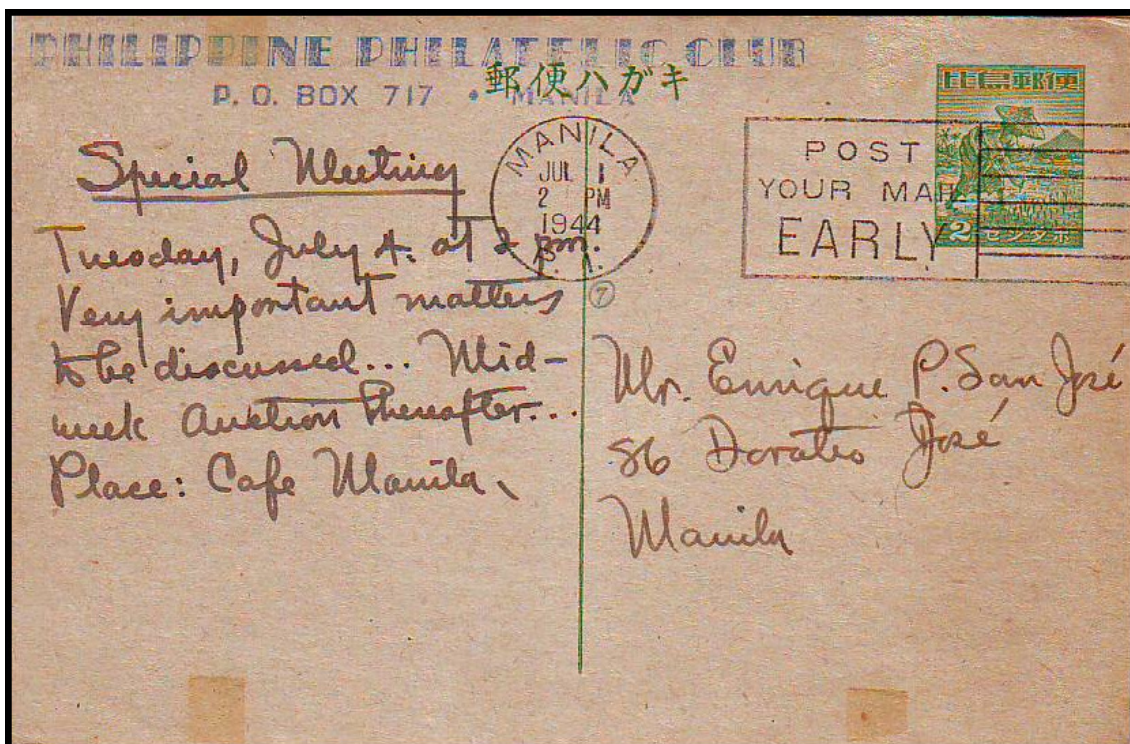 PHILIPPINE PHILATELIC CLUB
P. O. BOX 717 • MANILA
郵便ハガキ
比島郵便
2センタボ
MANILA
JUL 1
2 PM
1944
P. I.
POST
YOUR MAIL
EARLY
Special Meeting
Tuesday, July 4. at 2 pm.
Very important matters
to be discussed... Mid-
week Auction thereafter...
Place: Cafe Manila.
7
Mr. Enrique P. San José
86 Doroteo José
Manila